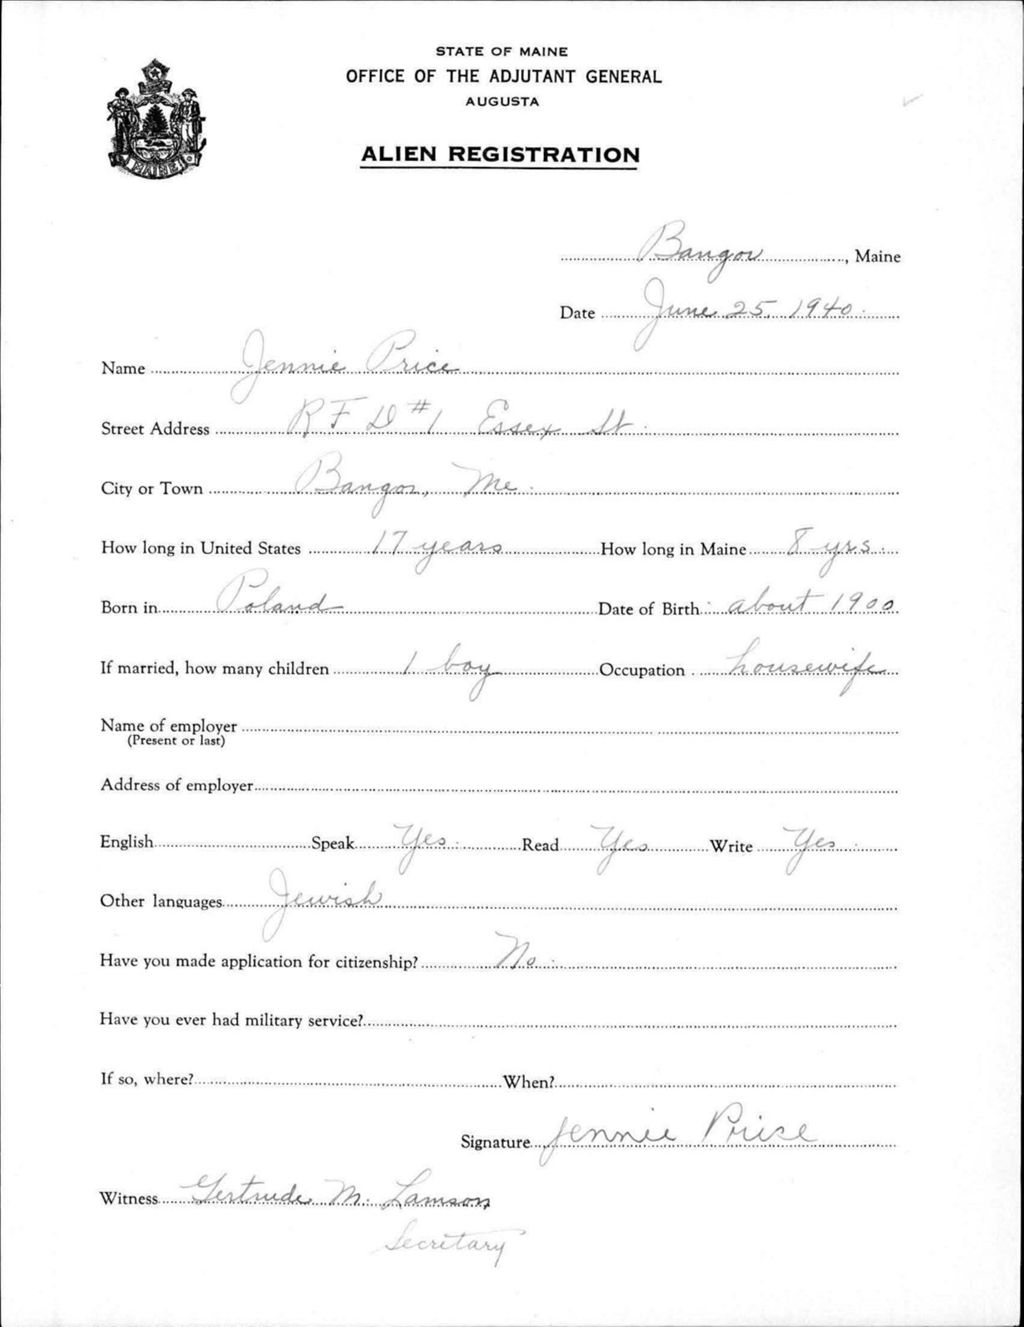 STATE OF MAINE
OFFICE OF THE ADJUTANT GENERAL
AUGUSTA
ALIEN REGISTRATION
MAINE
Bangor, Maine
Date June 25, 1940.
Name Jennie Price
Street Address R F D #1 Essex St.
City or Town Bangor, Me.
How long in United States 17 years How long in Maine 8 yrs.
Born in Poland Date of Birth about 1900.
If married, how many children 1 boy Occupation housewife
Name of employer
(Present or last)
Address of employer
English Speak Yes. Read Yes Write Yes.
Other languages Jewish
Have you made application for citizenship? No.
Have you ever had military service?
If so, where? When?
Signature Jennie Price
Witness Gertrude M. Lamson
Secretary